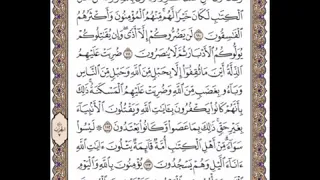 ٱلۡكِتَٰبِ لَكَانَ خَيۡرٗا لَّهُمۚ مِّنۡهُمُ ٱلۡمُؤۡمِنُونَ وَأَكۡثَرُهُمُ
ٱلۡفَٰسِقُونَ ١١٠ لَن يَضُرُّوكُمۡ إِلَّآ أَذٗىۖ وَإِن يُقَٰتِلُوكُمۡ
يُوَلُّوكُمُ ٱلۡأَدۡبَارَ ثُمَّ لَا يُنصَرُونَ ١١١ ضُرِبَتۡ عَلَيۡهِمُ
ٱلذِّلَّةُ أَيۡنَ مَا ثُقِفُوٓاْ إِلَّا بِحَبۡلٖ مِّنَ ٱللَّهِ وَحَبۡلٖ مِّنَ ٱلنَّاسِ
وَبَآءُو بِغَضَبٖ مِّنَ ٱللَّهِ وَضُرِبَتۡ عَلَيۡهِمُ ٱلۡمَسۡكَنَةُۚ ذَٰلِكَ
بِأَنَّهُمۡ كَانُواْ يَكۡفُرُونَ بِـَٔايَٰتِ ٱللَّهِ وَيَقۡتُلُونَ ٱلۡأَنۢبِيَآءَ
بِغَيۡرِ حَقّٖۚ ذَٰلِكَ بِمَا عَصَواْ وَّكَانُواْ يَعۡتَدُونَ ١١٢ ۞ لَيۡسُواْ
سَوَآءٗۗ مِّنۡ أَهۡلِ ٱلۡكِتَٰبِ أُمَّةٞ قَآئِمَةٞ يَتۡلُونَ ءَايَٰتِ ٱللَّهِ
ءَانَآءَ ٱلَّيۡلِ وَهُمۡ يَسۡجُدُونَ ١١٣ يُؤۡمِنُونَ بِٱللَّهِ وَٱلۡيَوۡمِ